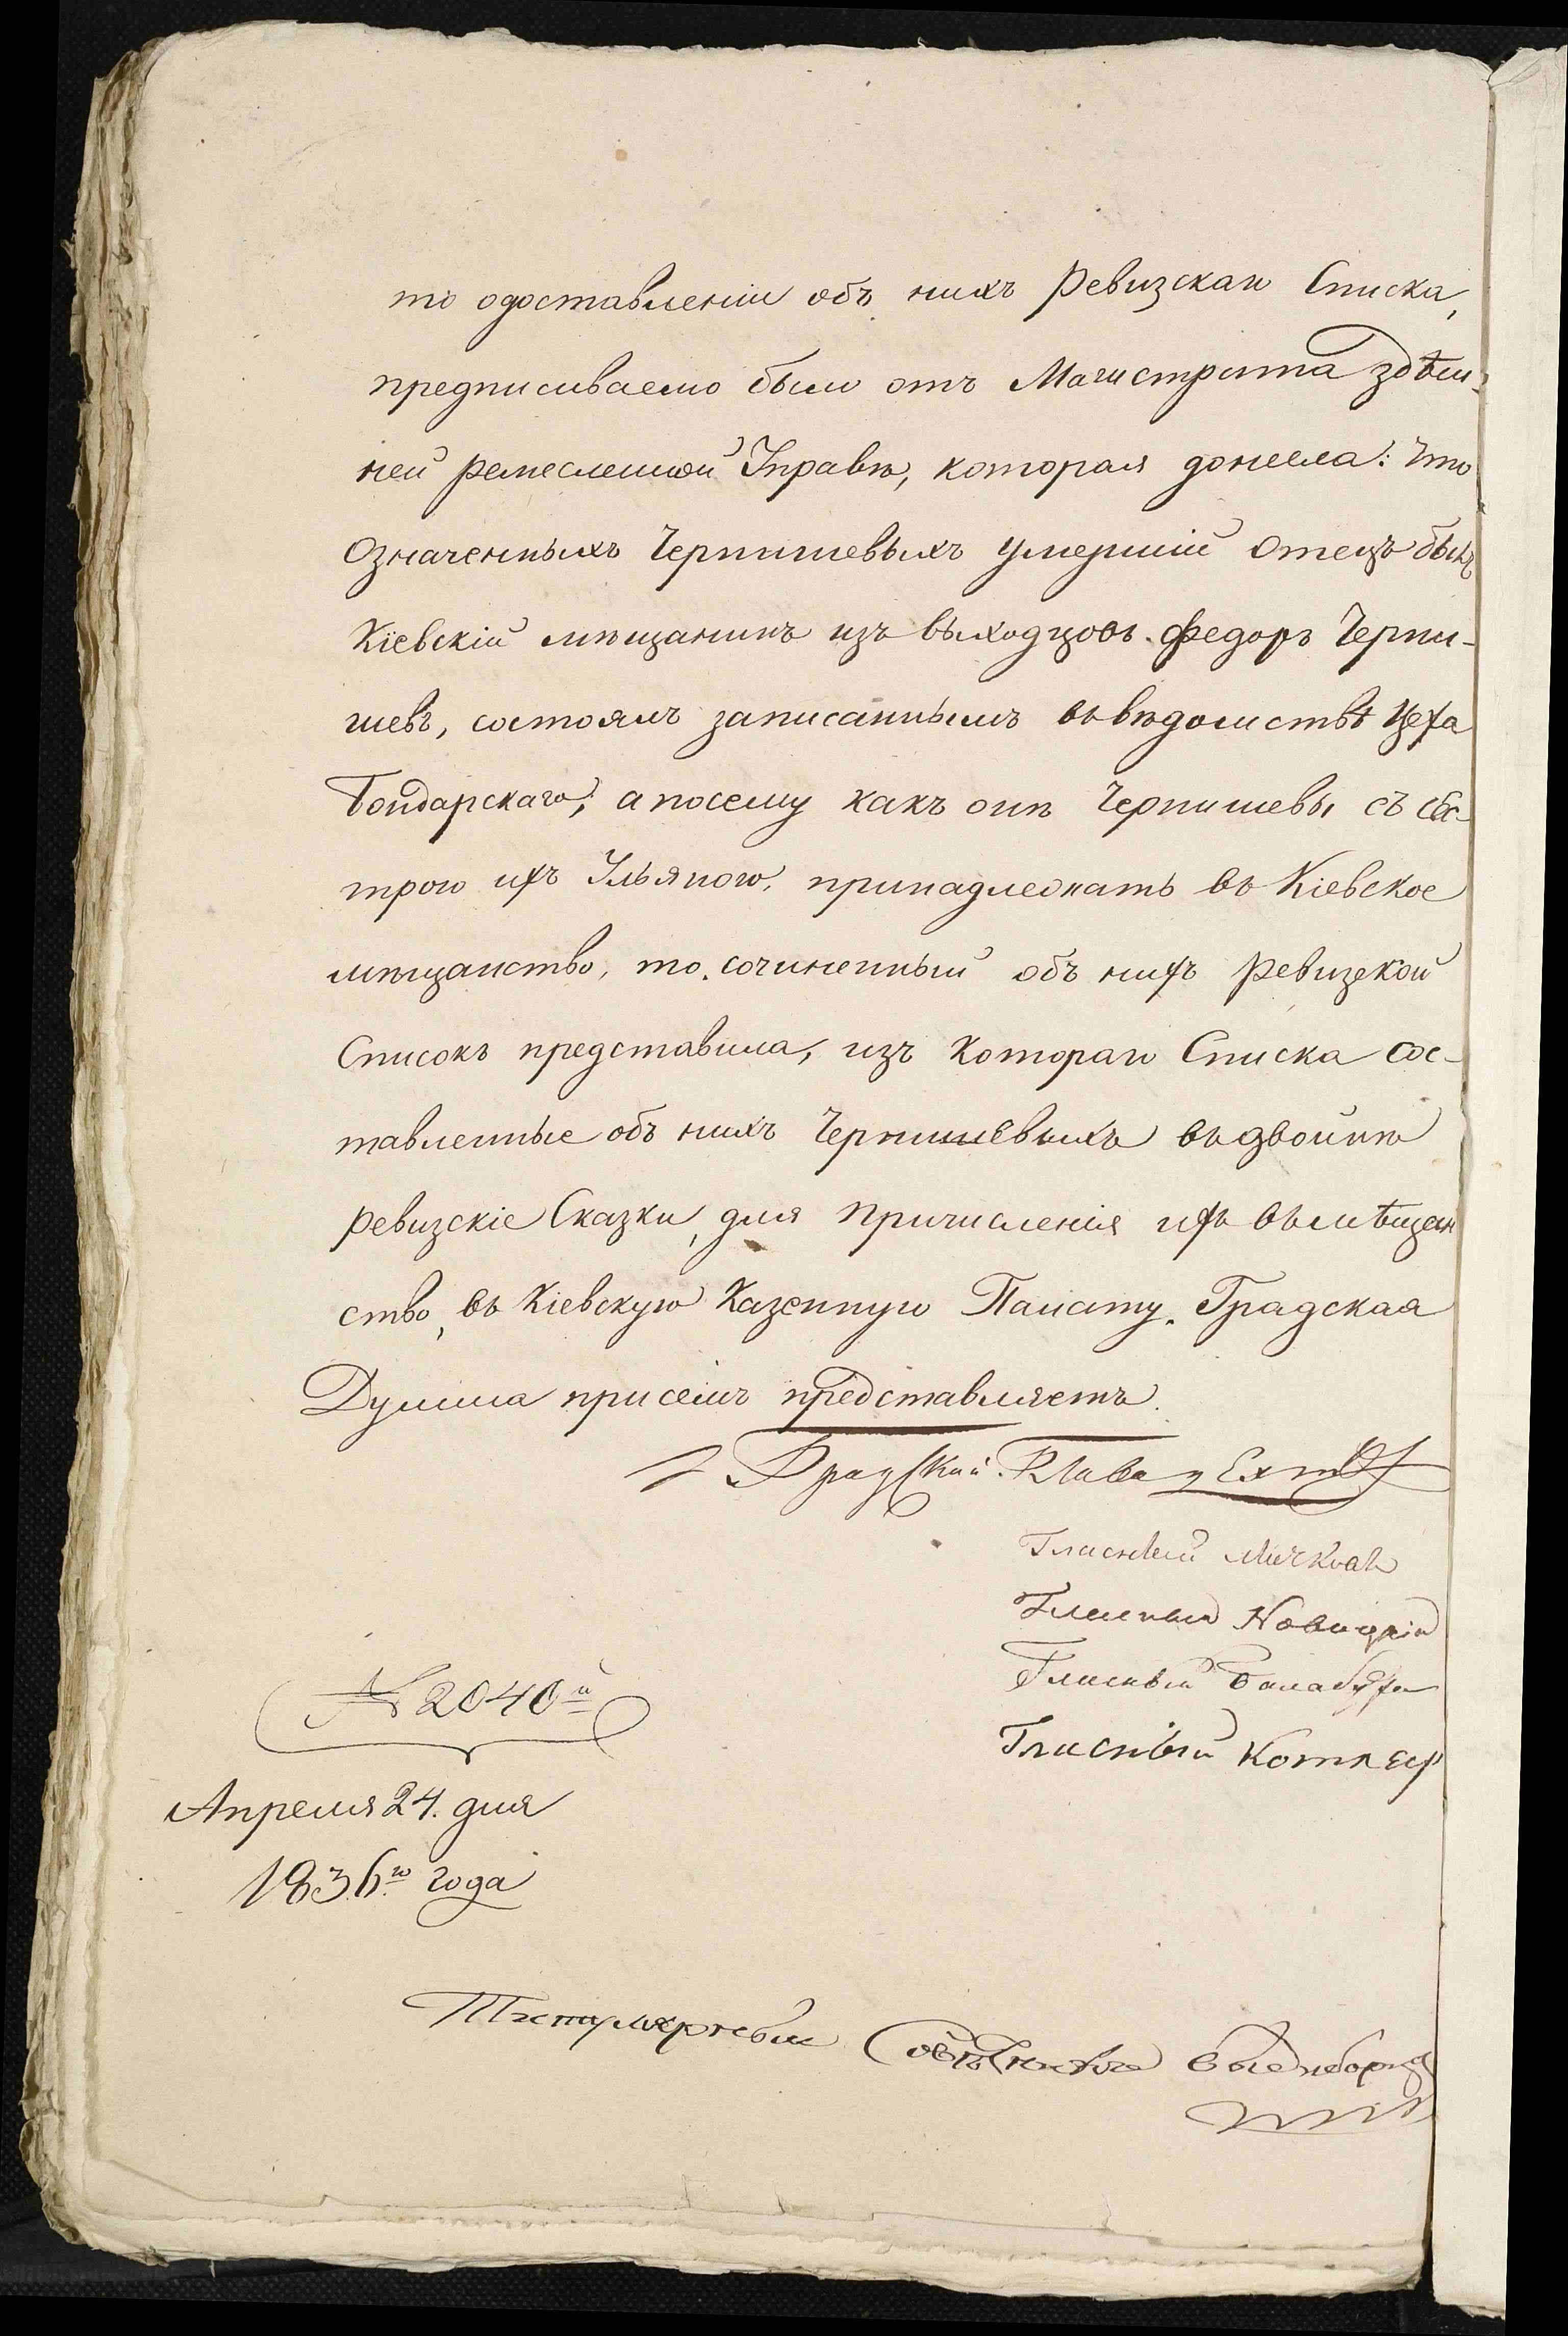 то одоставленіи объ нихъ Ревизскаго Списка,
предписиваемо было отъ Магистрата здѣш-
ней ремесленной Управѣ, которая донесла: что
Означенныхъ Чернишевыхъ умершій отецъ былъ
Кіевскій мѣщанинъ изъ выходцовъ Федоръ Черни-
шевъ, состоялъ записаннымъ въ вѣдомствѣ цеха
Бондарскаго; а посему какъ онѣ Чернишевы съ сес-
трою ихъ Ульяною, принадлежатъ въ Кіевское
мѣщанство, то сочиненный объ нихъ ревизской
Списокъ представила, изъ котораго Списка сос-
тавленные объ нихъ Чернишевыхъ въ двойнѣ
ревизскіе Сказки, для причисленія ихъ въ мѣщан
ство, въ Кіевскую Казенную Палату. Градская
Думма присемъ представляетъ.
Градскій Глава
Гласный
Гласный Новицкій
Гласный Балабуха
Гласный Котляр
№ 2040й
Апреля 24. дня
1836го года